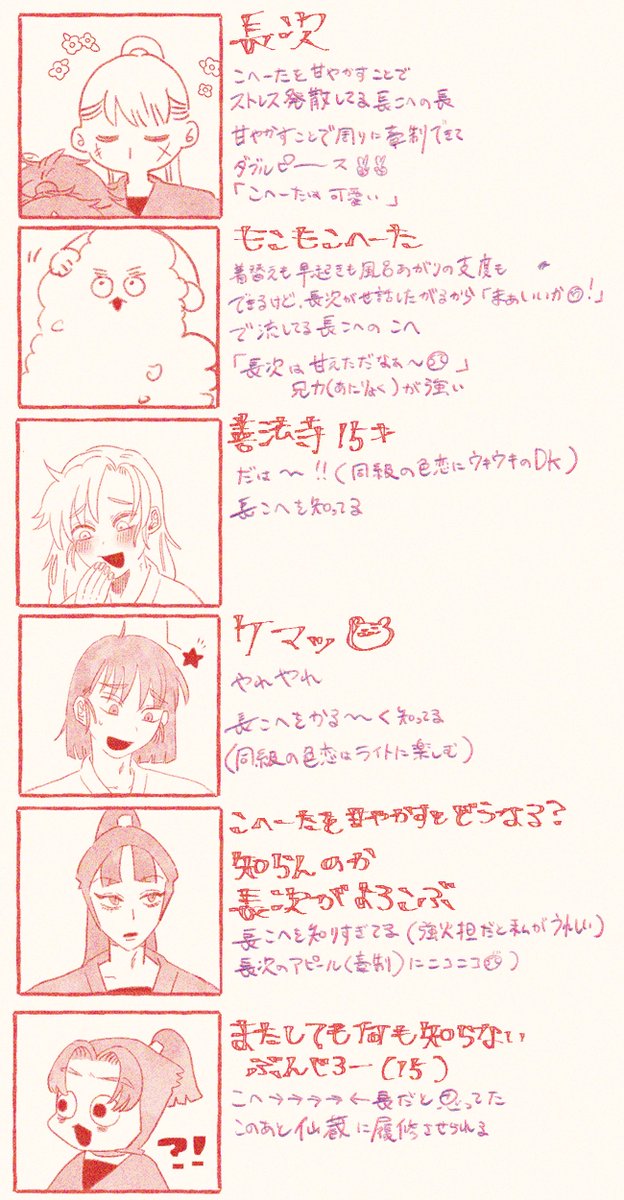 長次
こへーたを甘やかすことで
ストレス発散してる長こへの長
甘やかすことで周りに牽制できて
ダブルピース
「こへーたは可愛い」
もこもこへーた
着替えも早起きも風呂あがりの支度も
できるけど、長次がせ話したがるから「まあいいか!」
で流してる長こへのこへ
「長次は甘えただなぁ〜」
兄力(あにりょく)が強い
善法寺15才
だは〜!!(同級の色恋にウキウキのDK)
長こへを知ってる
ケマッ
やれやれ
長こへをかる〜く知ってる
(同級の色恋はライトに楽しむ)
こへーたを甘やかすとどうなる?
知らんのか
長次がよろこぶ
長こへを知りすぎてる(強火担だと私がうれしい)
長次のアピール(牽制)にニコニコ)
またしても何も知らない
ぶんじろー(15)
こへ→→→→←長だと思ってた
このあと仙蔵に履修させられる
?!